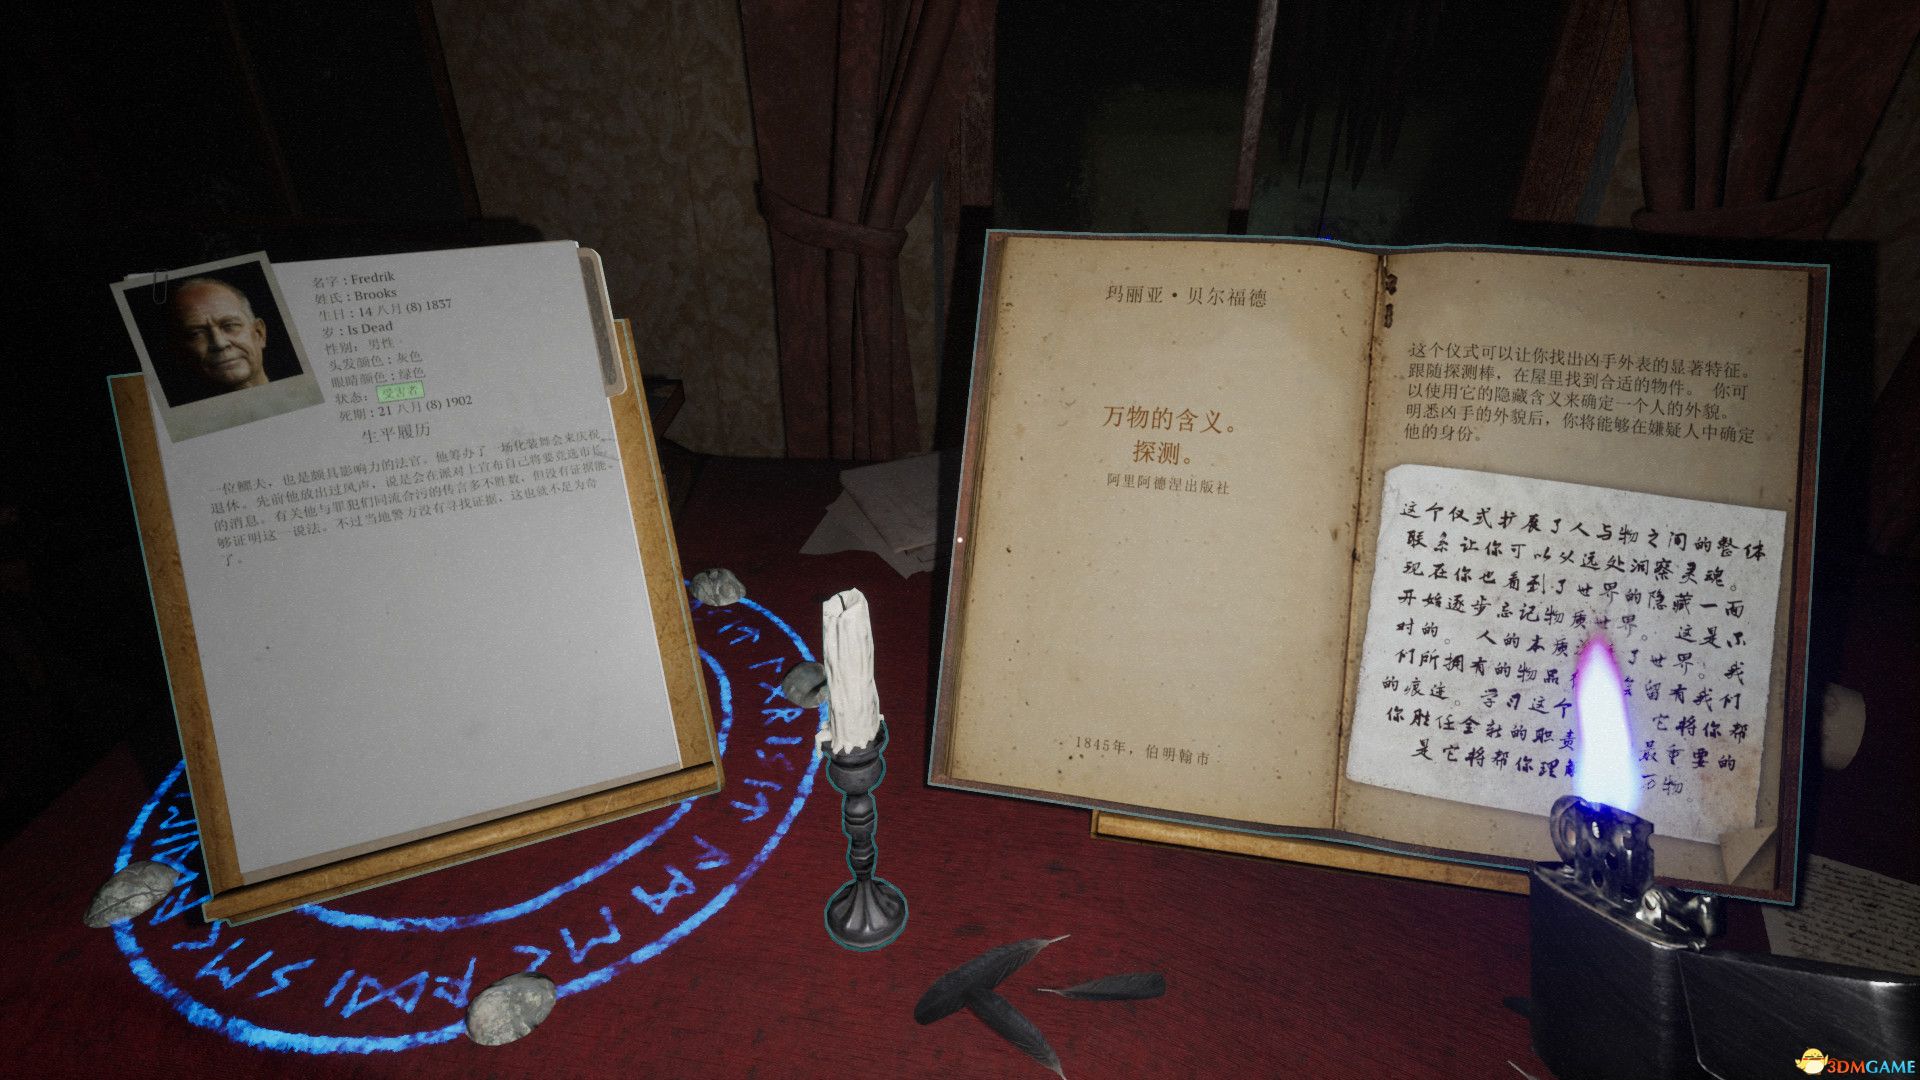 名字：Fredrik
姓氏：Brooks
生日：14 八月 (8) 1837
岁：Is Dead
性别： 男性
头发颜色：灰色
眼睛颜色：绿色
状态： 受害者
死期：21 八月 (8) 1902
生平履历
一位鳏夫，也是颇具影响力的法官。他筹办了一场化装舞会来庆祝
退休。先前他放出过风声，说是会在派对上宣布自己将要竞选市长
的消息。有关他与罪犯们同流合污的传言多不胜数，但没有证据能
够证明这一说法。不过当地警方没有寻找证据，这也就不足为奇
了。
玛丽亚·贝尔福德
万物的含义。
探测。
阿里阿德涅出版社
1845年，伯明翰市
这个仪式可以让你找出凶手外表的显著特征。
跟随探测棒，在屋里找到合适的物件。 你可
以使用它的隐藏含义来确定一个人的外貌。
明悉凶手的外貌后，你将能够在嫌疑人中确定
他的身份。
这个仪式扩展了人与物之间的整体
联系让你可以从远处洞察灵魂。
现在你也看到了世界的隐藏一面
开始逐步忘记物质世界。 这是不
对的。 人的本质 了世界。我
们所拥有的物品 留有我们
的痕迹。 学习这个 它将你帮
你胜任全新的职责 最重要的
是它将帮你理解 万物。
3DMGAME